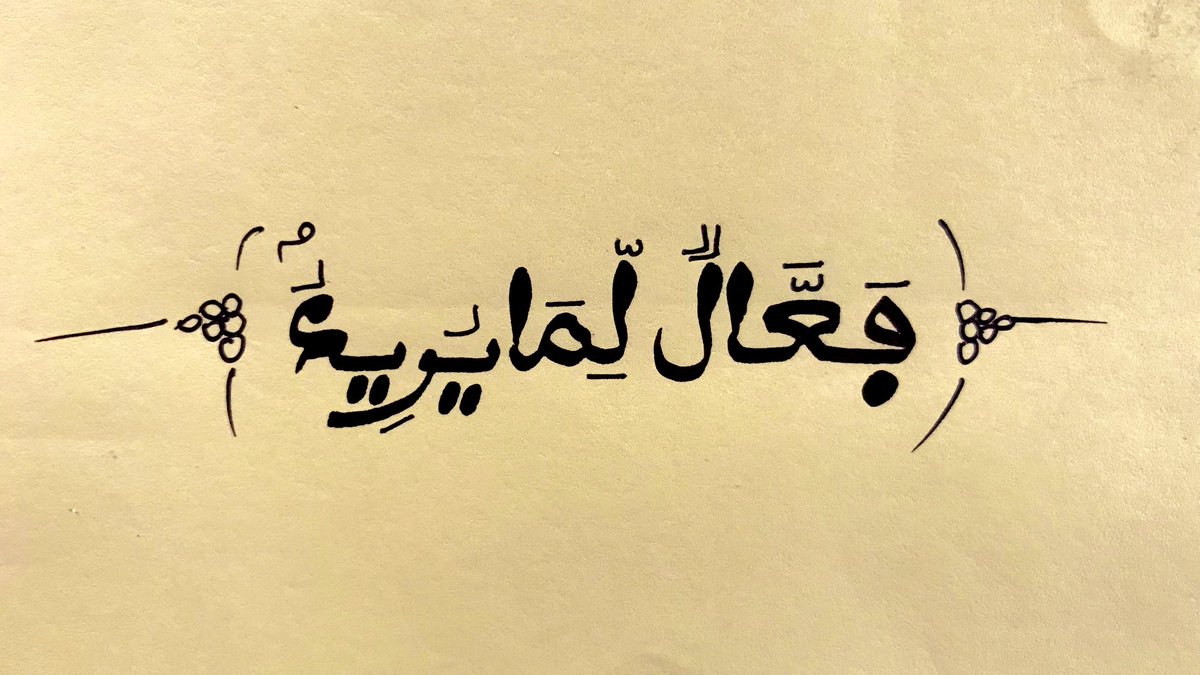 فَعَّالٌ لِّمَا يُرِيدُ